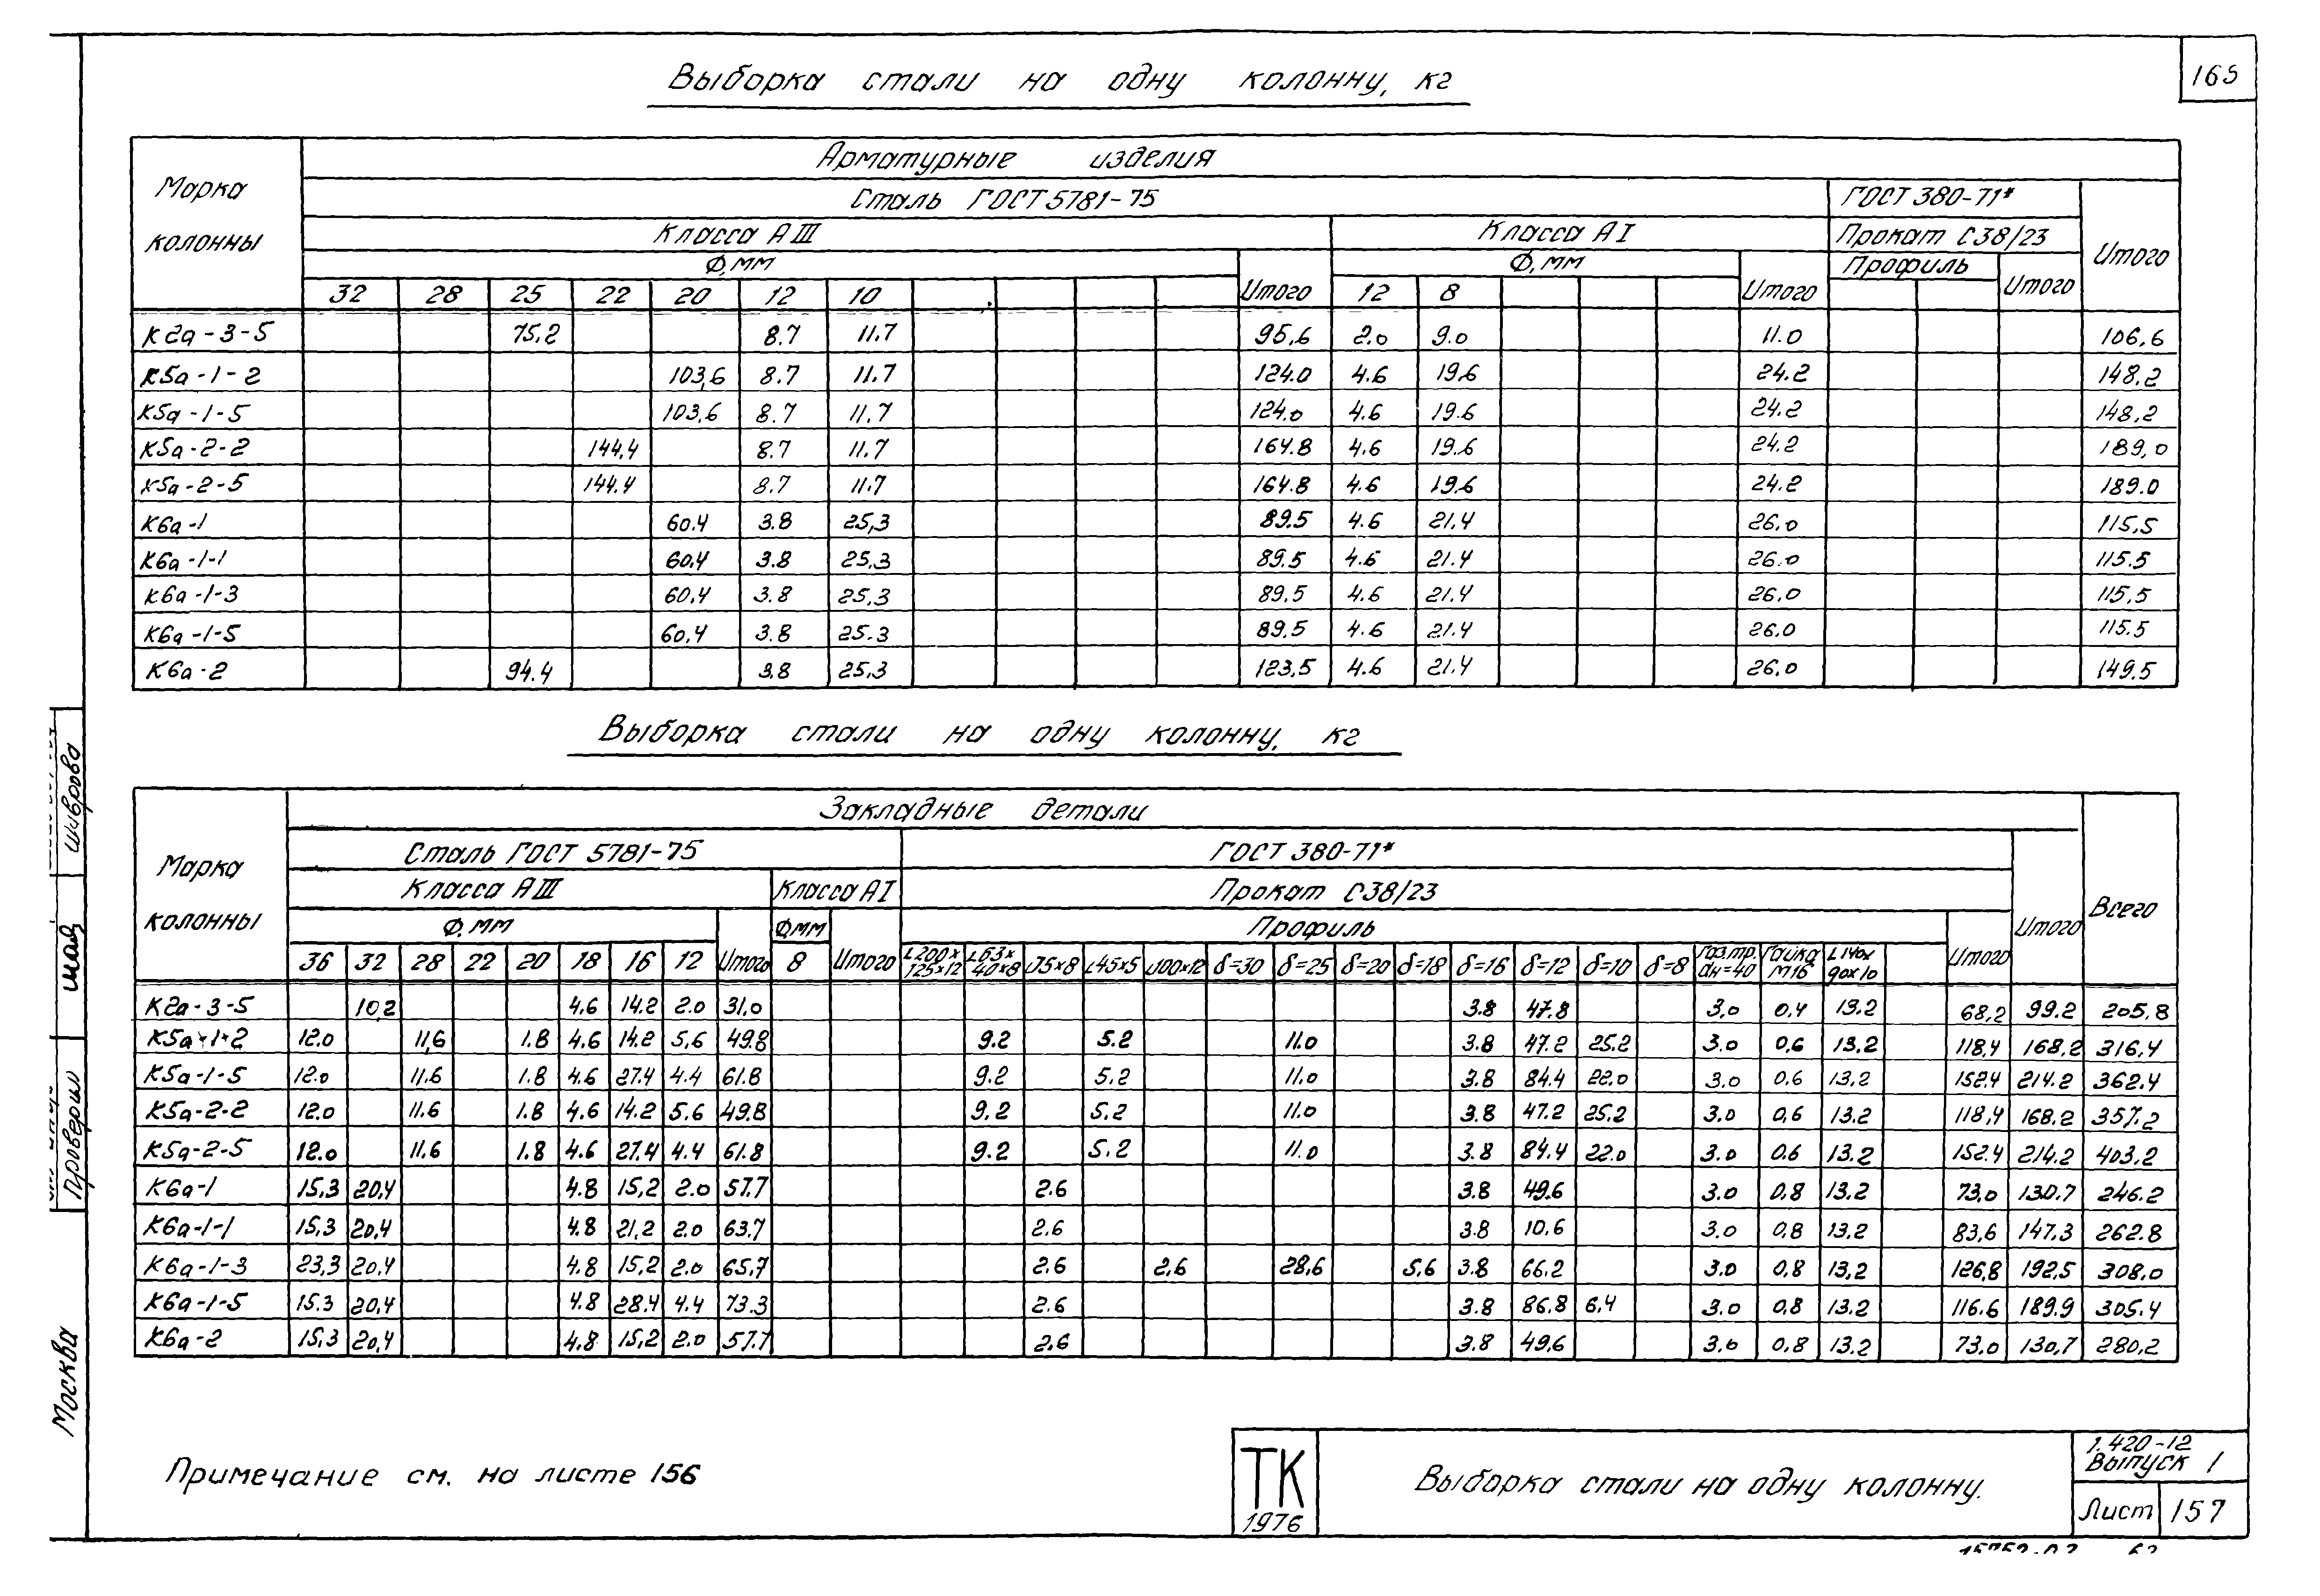 165
Выборка стали на одну колонну, кг
Марка колонны
Арматурные изделия
Сталь ГОСТ 5781-75
ГОСТ 380-71*
Итого
Класса А III
Класса А I
Прокат С38/23
Ф, мм
Итого
Ф, мм
Итого
Профиль
Итого
32 28 25 22 20 12 10 12 8
К2а-3-5 75,2 8.7 11.7 95,6 2.0 9.0 11.0 106,6
К5а-1-2 103,6 8.7 11.7 124.0 4.6 19.6 24.2 148.2
К5а-1-5 103,6 8.7 11.7 124.0 4.6 19.6 24.2 148,2
К5а-2-2 144,4 8.7 11.7 164.8 4.6 19.6 24.2 189,0
К5а-2-5 144.4 8.7 11.7 164.8 4.6 19.6 24.2 189.0
К6а-1 60.4 3.8 25,3 89.5 4.6 21.4 26.0 115,5
К6а-1-1 60,4 3.8 25,3 89.5 4.6 21.4 26.0 115.5
К6а-1-3 60,4 3.8 25.3 89.5 4.6 21.4 26.0 115,5
К6а-1-5 60,4 3.8 25.3 89.5 4.6 21.4 26.0 115.5
К6а-2 94.4 3.8 25,3 123,5 4.6 21.4 26,0 149.5
Выборка стали на одну колонну, кг
Марка колонны
Закладные детали
Всего
Сталь ГОСТ 5781-75
ГОСТ 380-71*
Итого
Класса А III
Класса А I
Прокат С38/23
Ф, мм
Итого
Ф, мм
Итого
Профиль
Итого
36 32 28 22 20 18 16 12 8 L200×125×12 L63×40×8 L75×8 L45×5 L100×12 δ=30 δ=25 δ=20 δ=18 δ=16 δ=12 δ=10 δ=8 Газ.тр. dн=40 Гайка М16 L140×90×10
К2а-3-5 10,2 4.6 14.2 2.0 31.0 3.8 47.8 3,0 0,4 13.2 68,2 99.2 205.8
К5а-1-2 12.0 11,6 1.8 4.6 14.2 5,6 49.8 9.2 5.2 11.0 3.8 47.2 25.2 3.0 0,6 13,2 118,4 168,2 316,4
К5а-1-5 12.0 11.6 1.8 4.6 27.4 4.4 61.8 9.2 5.2 11.0 3.8 84.4 22.0 3.0 0.6 13,2 152.4 214.2 362.4
К5а-2-2 12.0 11.6 1.8 4.6 14.2 5.6 49.8 9.2 5.2 11.0 3.8 47.2 25.2 3.0 0,6 13.2 118,4 168.2 357.2
К5а-2-5 12.0 11.6 1.8 4.6 27.4 4.4 61.8 9.2 5.2 11.0 3.8 84.4 22.0 3.0 0.6 13.2 152.4 214.2 403.2
К6а-1 15,3 20,4 4.8 15,2 2.0 57.7 2.6 3.8 49.6 3.0 0,8 13,2 73,0 130.7 246.2
К6а-1-1 15,3 20,4 4.8 21,2 2.0 63.7 2.6 3.8 10,6 3.0 0,8 13,2 83,6 147.3 262.8
К6а-1-3 23,3 20,4 4.8 15,2 2.0 65,7 2.6 2,6 28,6 5,6 3.8 66.2 3.0 0,8 13,2 126,8 192,5 308,0
К6а-1-5 15.3 20,4 4.8 28.4 4.4 73.3 2.6 3.8 86.8 6,4 3.0 0,8 13.2 116.6 189.9 305.4
К6а-2 15,3 20,4 4.8 15,2 2.0 57.7 2,6 3.8 49,6 3.0 0,8 13.2 73.0 130,7 280,2
Шаврова
Проверил
Москва
Примечание см. на листе 156
ТК
1976
Выборка стали на одну колонну.
1.420-12
Выпуск 1
Лист 157